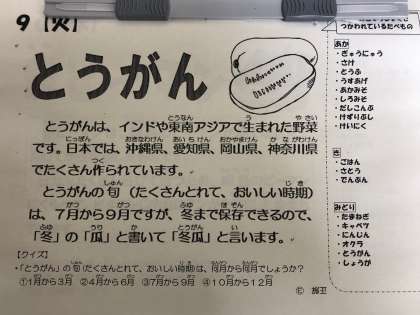 9【火】
とうがん
とうがんは、インドや東南アジアで生まれた野菜
です。日本では、沖縄県、愛知県、岡山県、神奈川県
でたくさん作られています。
とうがんの旬（たくさんとれて、おいしい時期）
は、7月から9月ですが、冬まで保存できるので、
「冬」の「瓜」と書いて「冬瓜」と言います。
【クイズ】
・「とうがん」の旬(たくさんとれて、おいしい時期)は、何月から何月でしょうか？
①1月から3月　②4月から6月　③7月から9月　④10月から12月
つかわれているたべもの
あか
・ぎゅうにゅう
・さけ
・とうふ
・うすあげ
・あかみそ
・しろみそ
・だしこんぶ
・けずりぶし
・けいにく
き
・ごはん
・さとう
・でんぷん
みどり
・たまねぎ
・キャベツ
・にんじん
・オクラ
・とうがん
・しょうが